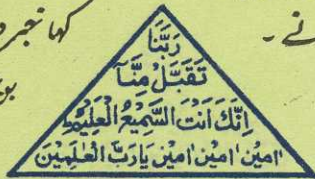 نے ۔
کہا
رَبَّنَا
تَقَبَّلْ مِنَّا
اِنَّكَ اَنْتَ السَّمِيْعُ الْعَلِيْمُ
اٰمِيْن اٰمِيْن اٰمِيْن يَارَبَّ الْعٰلَمِيْنَ